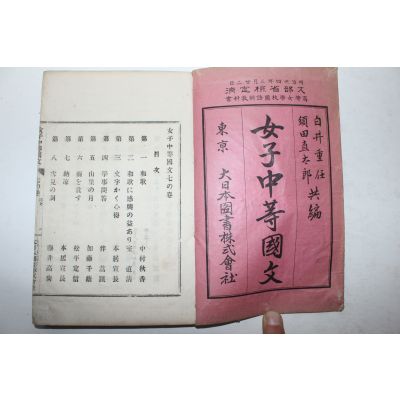 明治卅四年三月廿二日
文部省檢定濟
高等女學校國語科教科書
白井重任
須田直太郎
共編
女子中等國文
東京 大日本圖書株式會社
女子中等國文七の卷
目次
第一 和歌 中村秋香
第二 和歌に感興の益あり 室直清
第三 文字かく心得 本居宣長
第四 學事問答 伴蒿蹊
第五 山里の月 加藤千蔭
第六 雨を賞す 松平定信
第七 納凉 本居宣長
第八 雪見の詞 藤井高尚